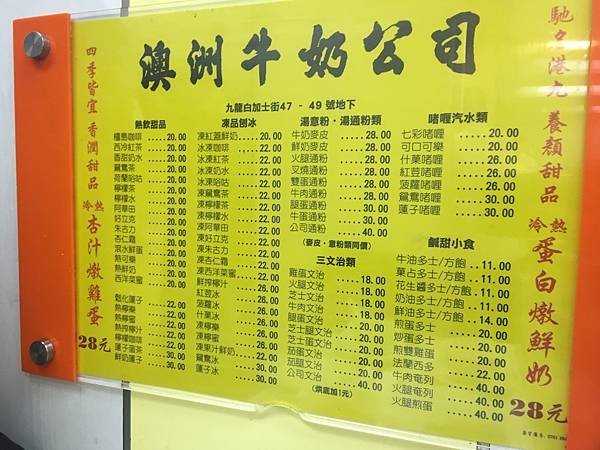 澳洲牛奶公司
九龍白加士街47 - 49 號地下
四季皆宜 香潤甜品
冷熱 杏汁燉雞蛋
28元
熱飲甜品
福島咖啡 20.00
西冷紅茶 20.00
香甜奶水 20.00
鴛鴦茶 20.00
荷蘭咕咕 20.00
檸檬茶 20.00
檸檬水 20.00
阿華田 20.00
好立克 20.00
朱古力 20.00
杏仁霜 20.00
滾水鮮蛋 20.00
熱可樂 20.00
熱鮮奶 20.00
西洋菜蜜 20.00
龜化蓮子 22.00
熱檸樂 22.00
熱檸蜜 22.00
熱撈檸汁 22.00
檸檬咖啡 22.00
蓮子蛋茶 30.00
鮮奶蓮子 30.00
凍品刨冰
凍紅蓋鮮奶 20.00
冰凍咖啡 22.00
冰凍紅茶 22.00
冰凍奶水 22.00
冰凍咕咕 22.00
凍鴛鴦茶 22.00
凍檸檬茶 22.00
凍檸檬水 22.00
凍阿華田 22.00
凍好立克 22.00
凍朱古力 22.00
凍杏仁霜 22.00
凍西洋菜蜜 22.00
鮮撈檸汁 26.00
紅荳冰 26.00
菠蘿冰 26.00
什菓冰 26.00
凍檸蜜 26.00
凍檸樂 26.00
凍果汁鮮奶 22.00
鴛鴦冰 30.00
蓮子冰 30.00
湯意粉・湯通粉類
牛奶麥皮 28.00
鮮奶麥皮 28.00
火腿通粉 28.00
叉燒通粉 28.00
雙蛋通粉 28.00
牛肉通粉 28.00
腿蛋通粉 30.00
牛蛋通粉 30.00
公司通粉 40.00
(麥皮・意粉類同價)
三文治類
雞蛋文治 18.00
火腿文治 18.00
芝士文治 18.00
牛肉文治 18.00
腿蛋文治 20.00
芝士腿文治 20.00
芝士蛋文治 20.00
茄蛋文治 20.00
茄腿文治 20.00
公司文治 40.00
(烘底加1元)
啫喱汽水類
七彩啫喱 20.00
可口可樂 20.00
什菓啫喱 26.00
紅荳啫喱 26.00
菠蘿啫喱 26.00
鴛鴦啫喱 30.00
蓮子啫喱 30.00
鹹甜小食
牛油多士/方飽 11.00
菓占多士/方飽 11.00
花生醬多士/方飽 11.00
奶油多士/方飽 11.00
鮮油多士/方飽 14.00
煎蛋多士 20.00
炒蛋多士 20.00
煎雙雞蛋 20.00
法蘭西多 22.00
牛肉奄列 40.00
火腿奄列 40.00
火腿煎蛋 40.00
馳名港九 養顏甜品
冷熱 蛋白燉鮮奶
28元